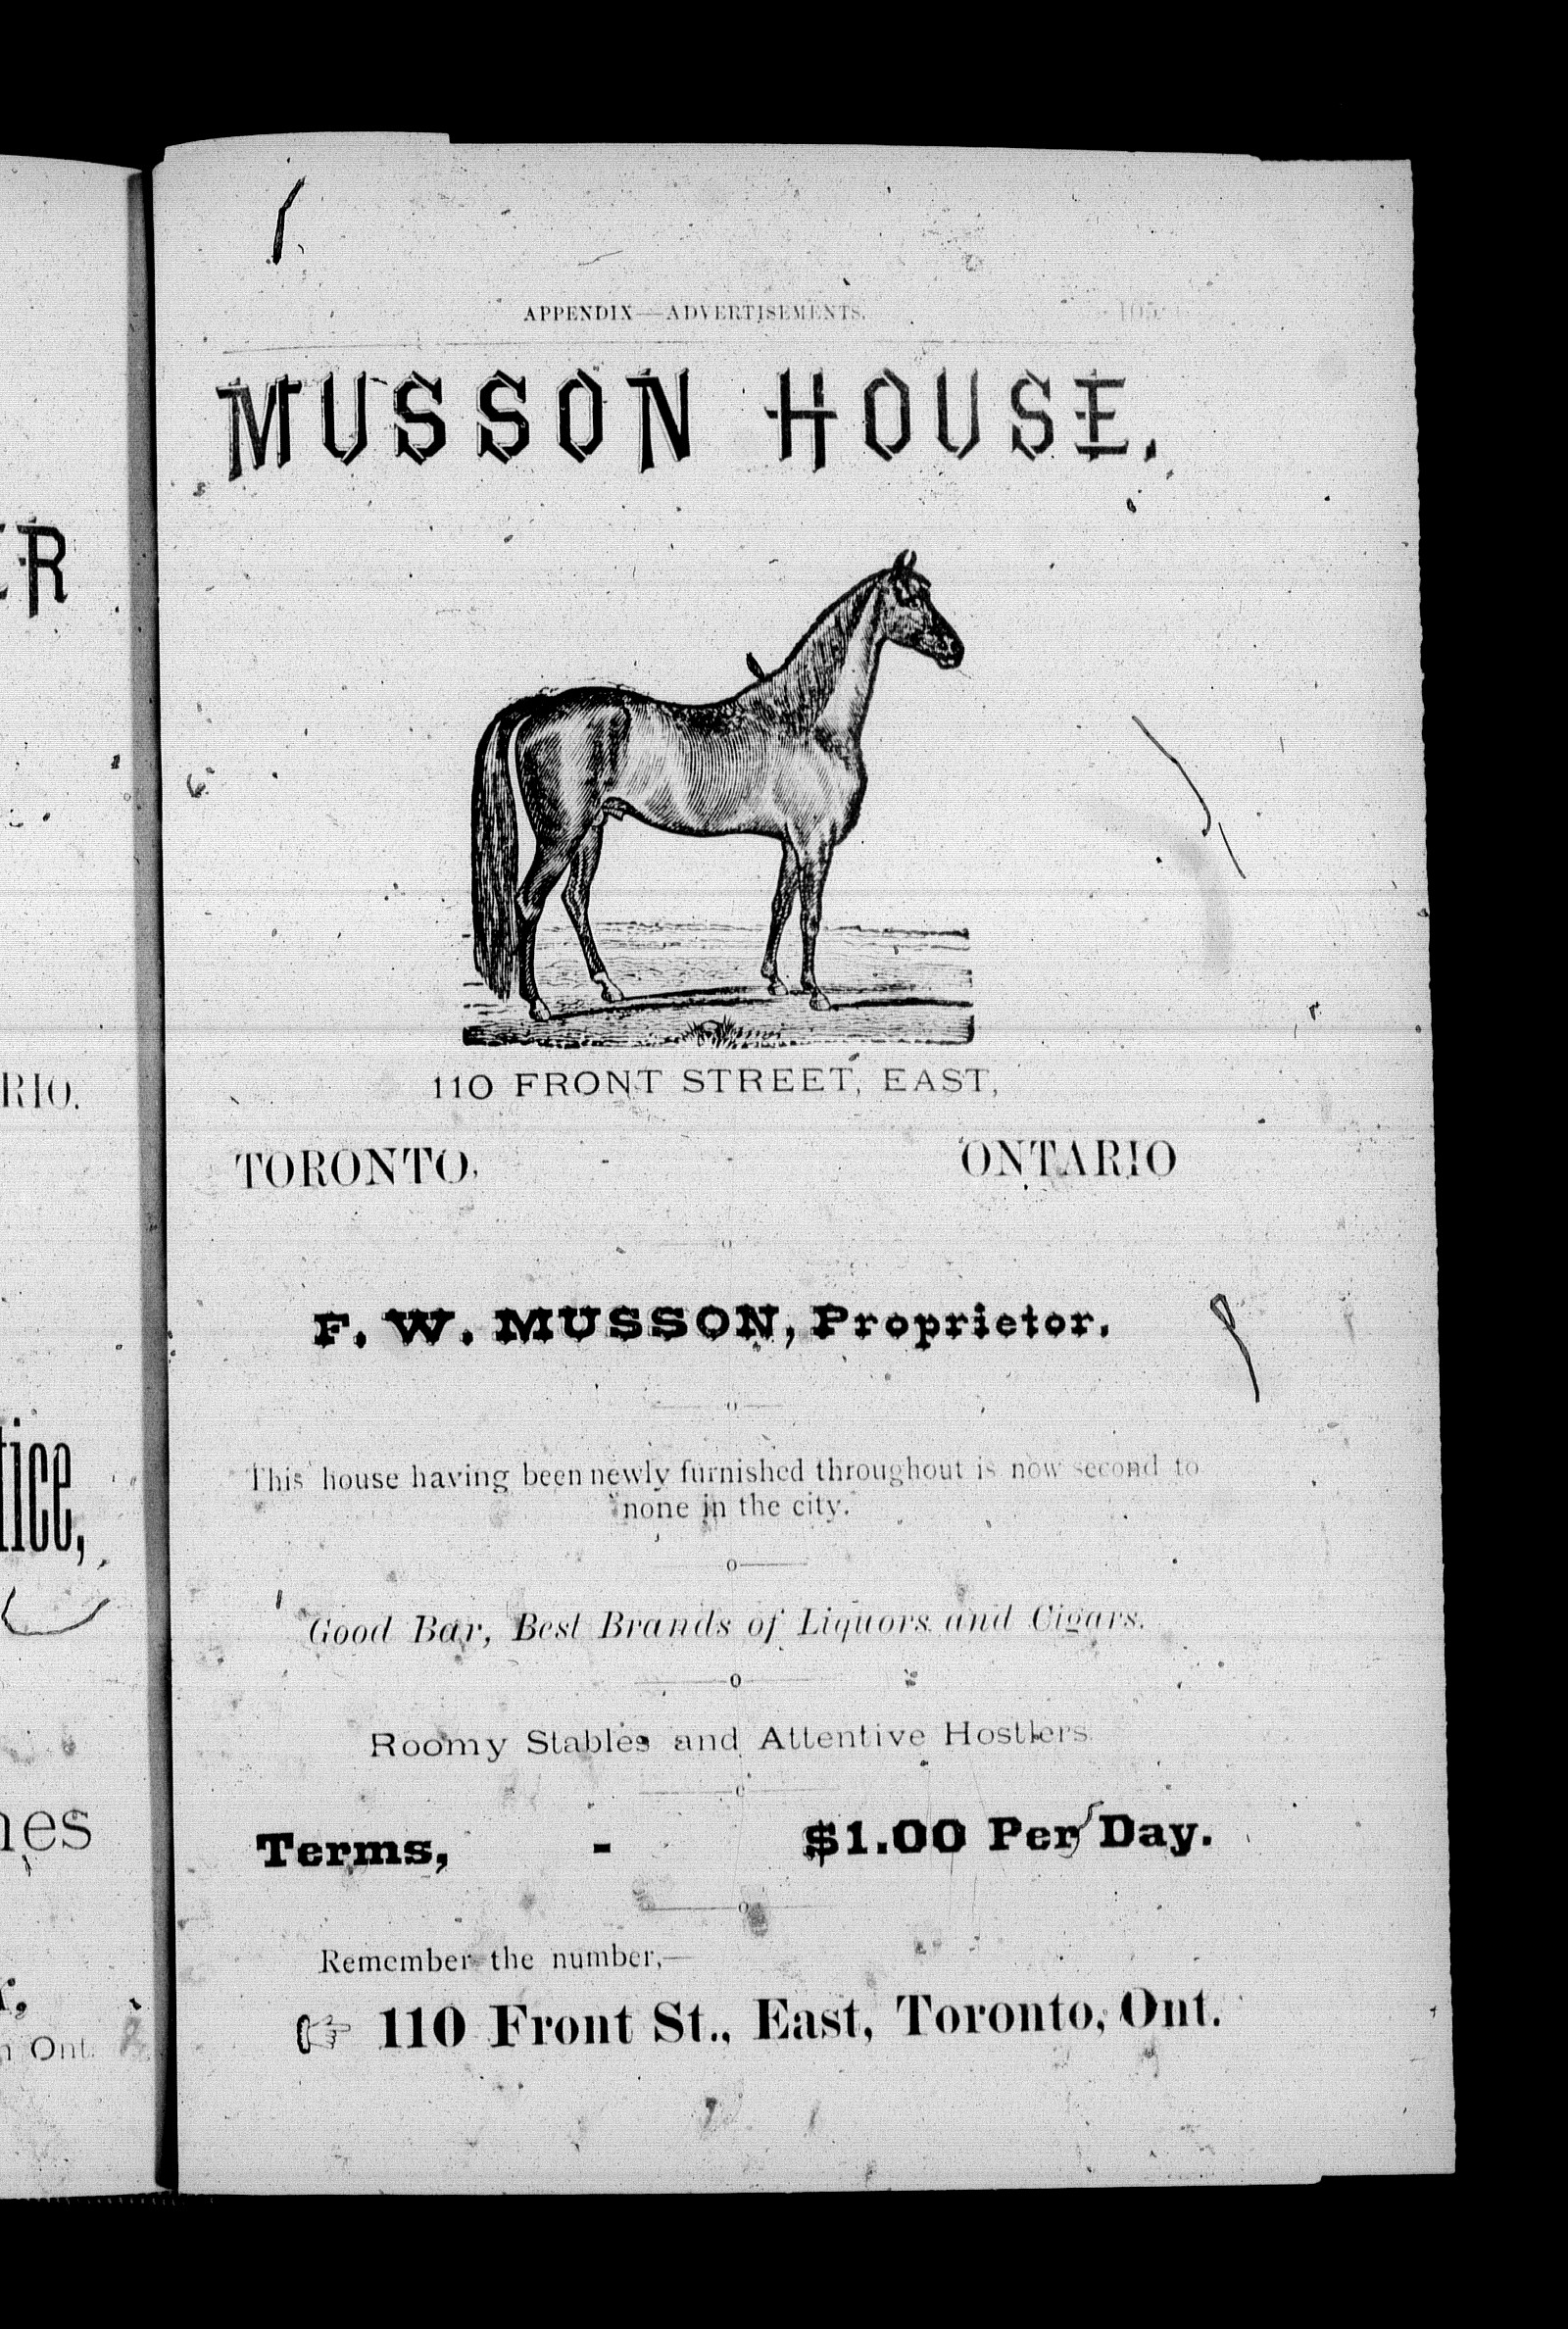 ER
RIO.
tice,
nes
r,
n Ont.
APPENDIX—ADVERTISEMENTS. 105
MUSSON HOUSE.
110 FRONT STREET, EAST,
TORONTO, - ONTARIO
o
F. W. MUSSON, Proprietor.
o
This house having been newly furnished throughout is now second to
none in the city.
o
Good Bar, Best Brands of Liquors and Cigars.
o
Roomy Stables and Attentive Hostlers.
o
Terms, - $1.00 Per Day.
o
Remember the number,—
☞ 110 Front St., East, Toronto, Ont.